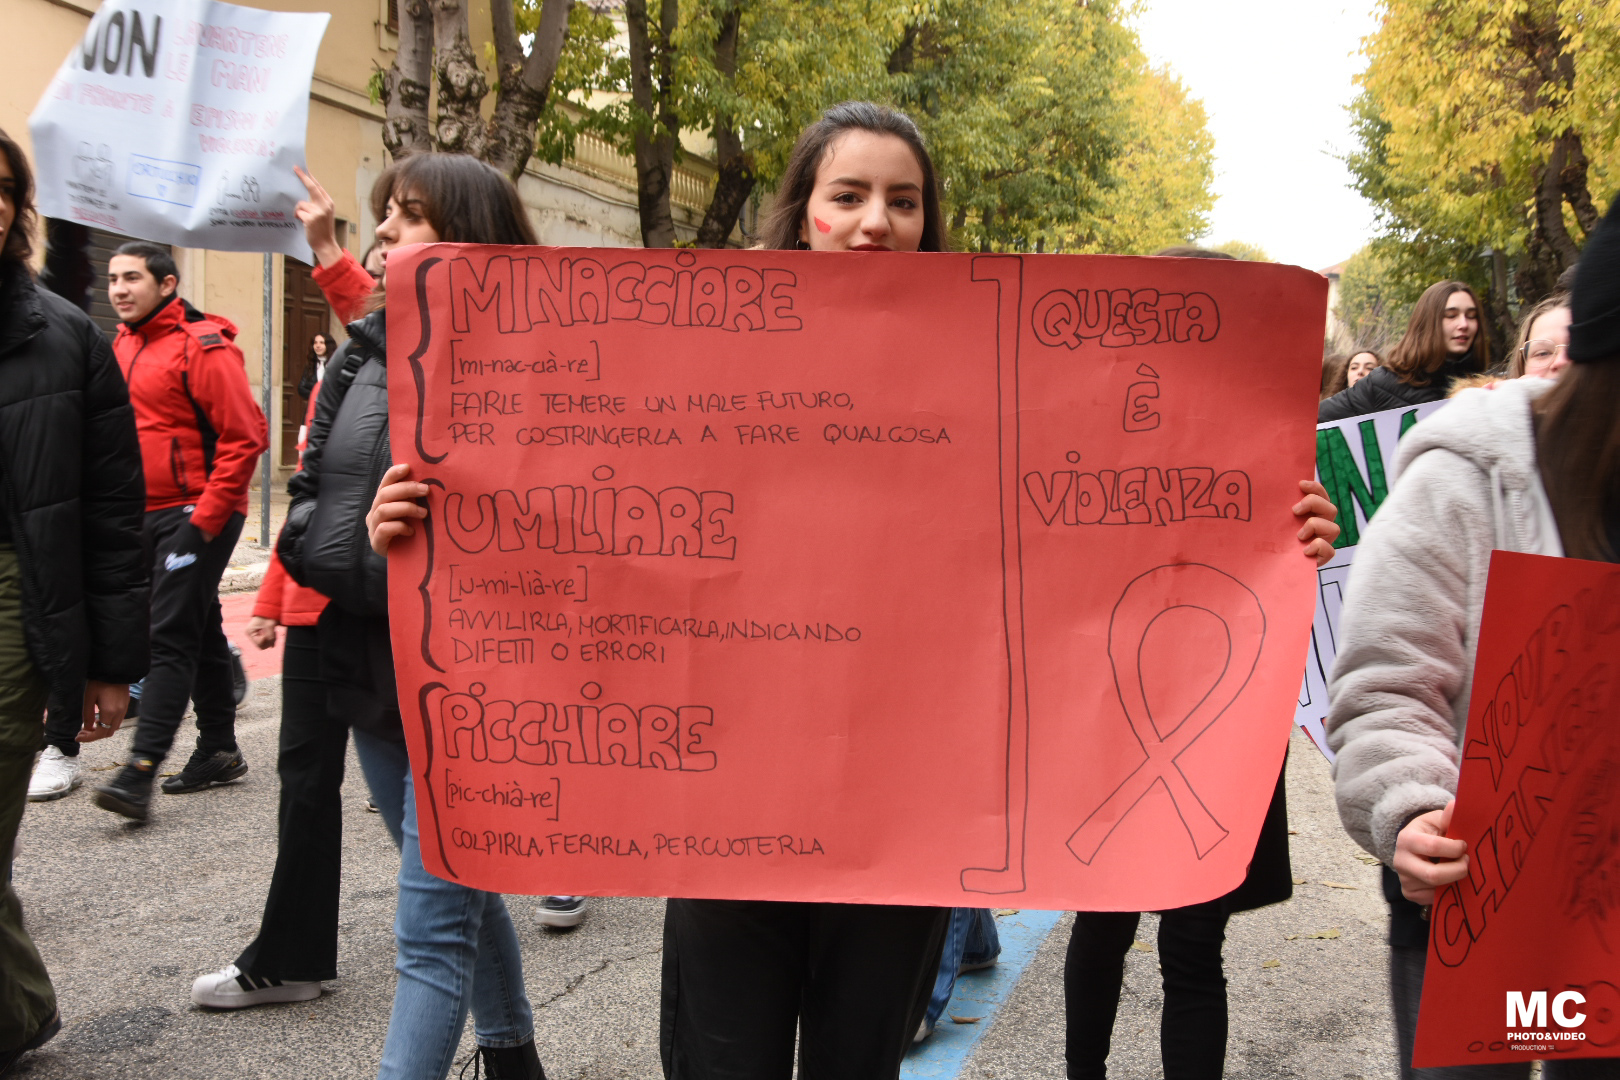 NON LAVARTENE
LE MANI
IN FRONTE A EPISODI DI
VIOLENZA:
MINACCIARE
[mi-nac-cià-re]
FARLE TEMERE UN MALE FUTURO,
PER COSTRINGERLA A FARE QUALCOSA
UMILIARE
[u-mi-lià-re]
AVVILIRLA, MORTIFICARLA, INDICANDO
DIFETTI O ERRORI
PICCHIARE
[pic-chià-re]
COLPIRLA, FERIRLA, PERCUOTERLA
QUESTA
È
VIOLENZA
YOUR
CHANGE
MC
PHOTO&VIDEO
PRODUCTION